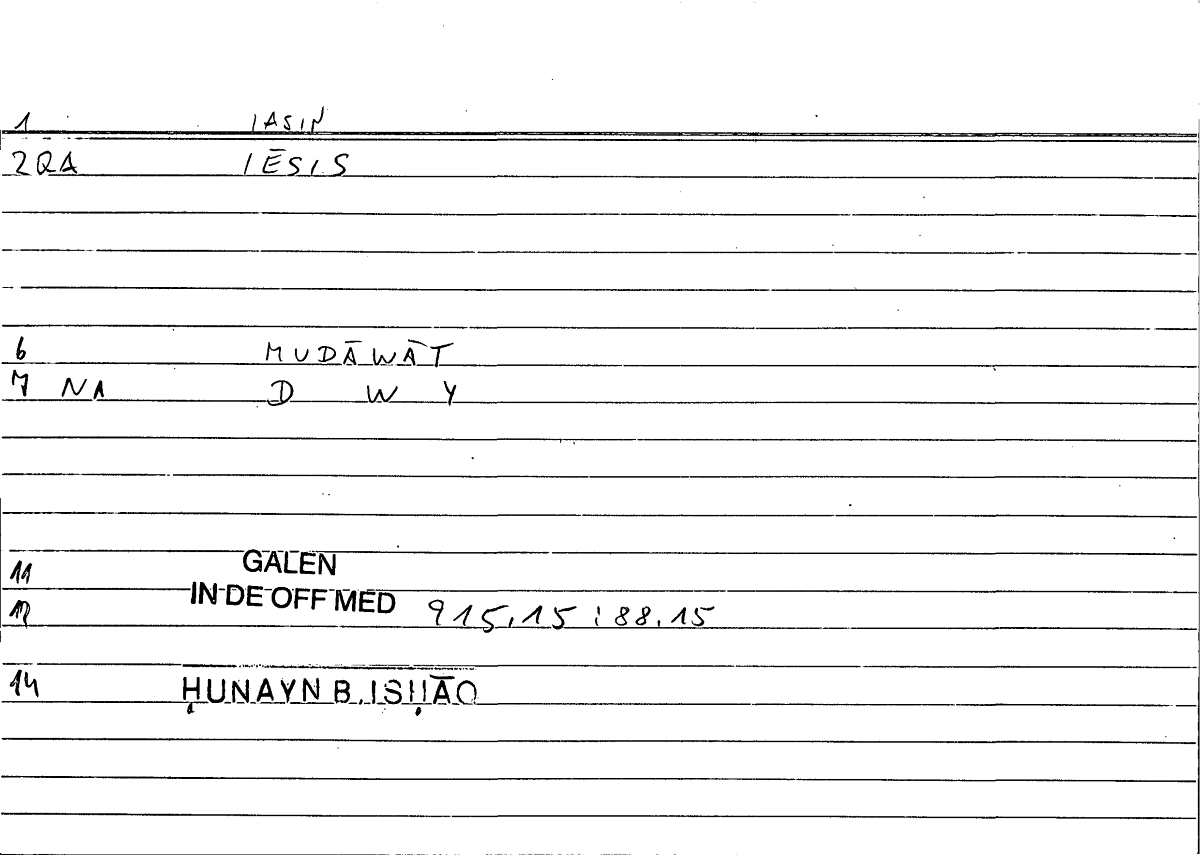 1 IASIN
2QA IĒSIS
6 MUDĀWĀT
7 NA D W Y
11 GALEN
12 IN DE OFF MED 915.15 : 88.15
14 ḤUNAYN B. ISḤĀQ